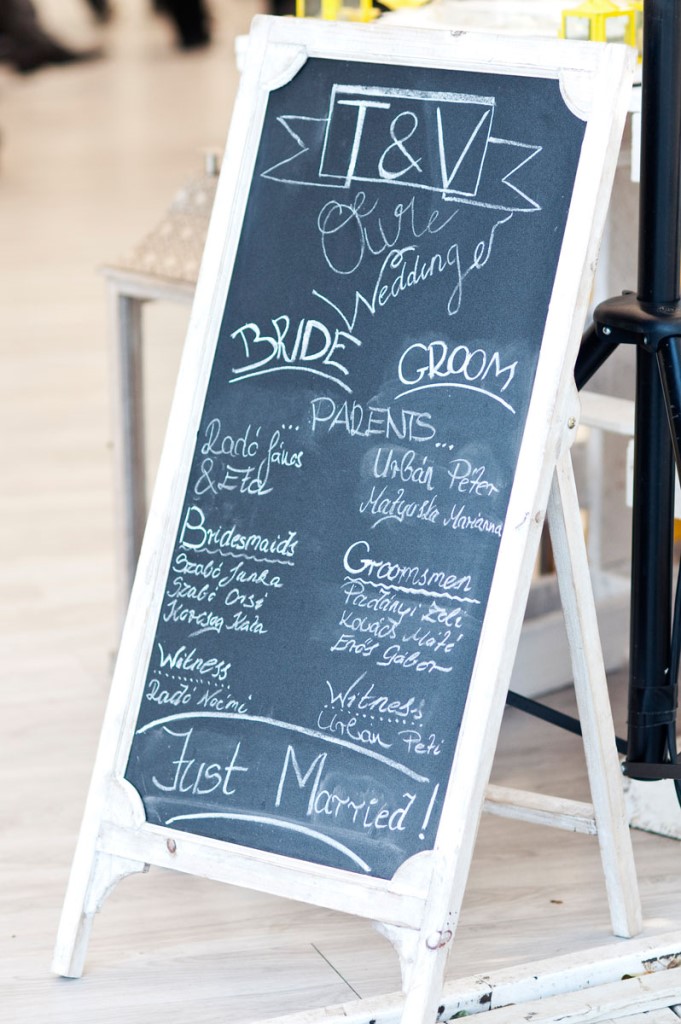 T&V
Oure
Wedding
BRIDE
GROOM
... PARENTS ...
Radó János
& Eta
Urbán Péter
Matyuska Marianna
Bridesmaids
Szabó Janka
Szabó Orsi
Korcsog Kata
Groomsmen
Padányi Zoli
Kovács Máté
Erős Gábor
Witness
Radó Noémi
Witness
Urbán Peti
Just Married!